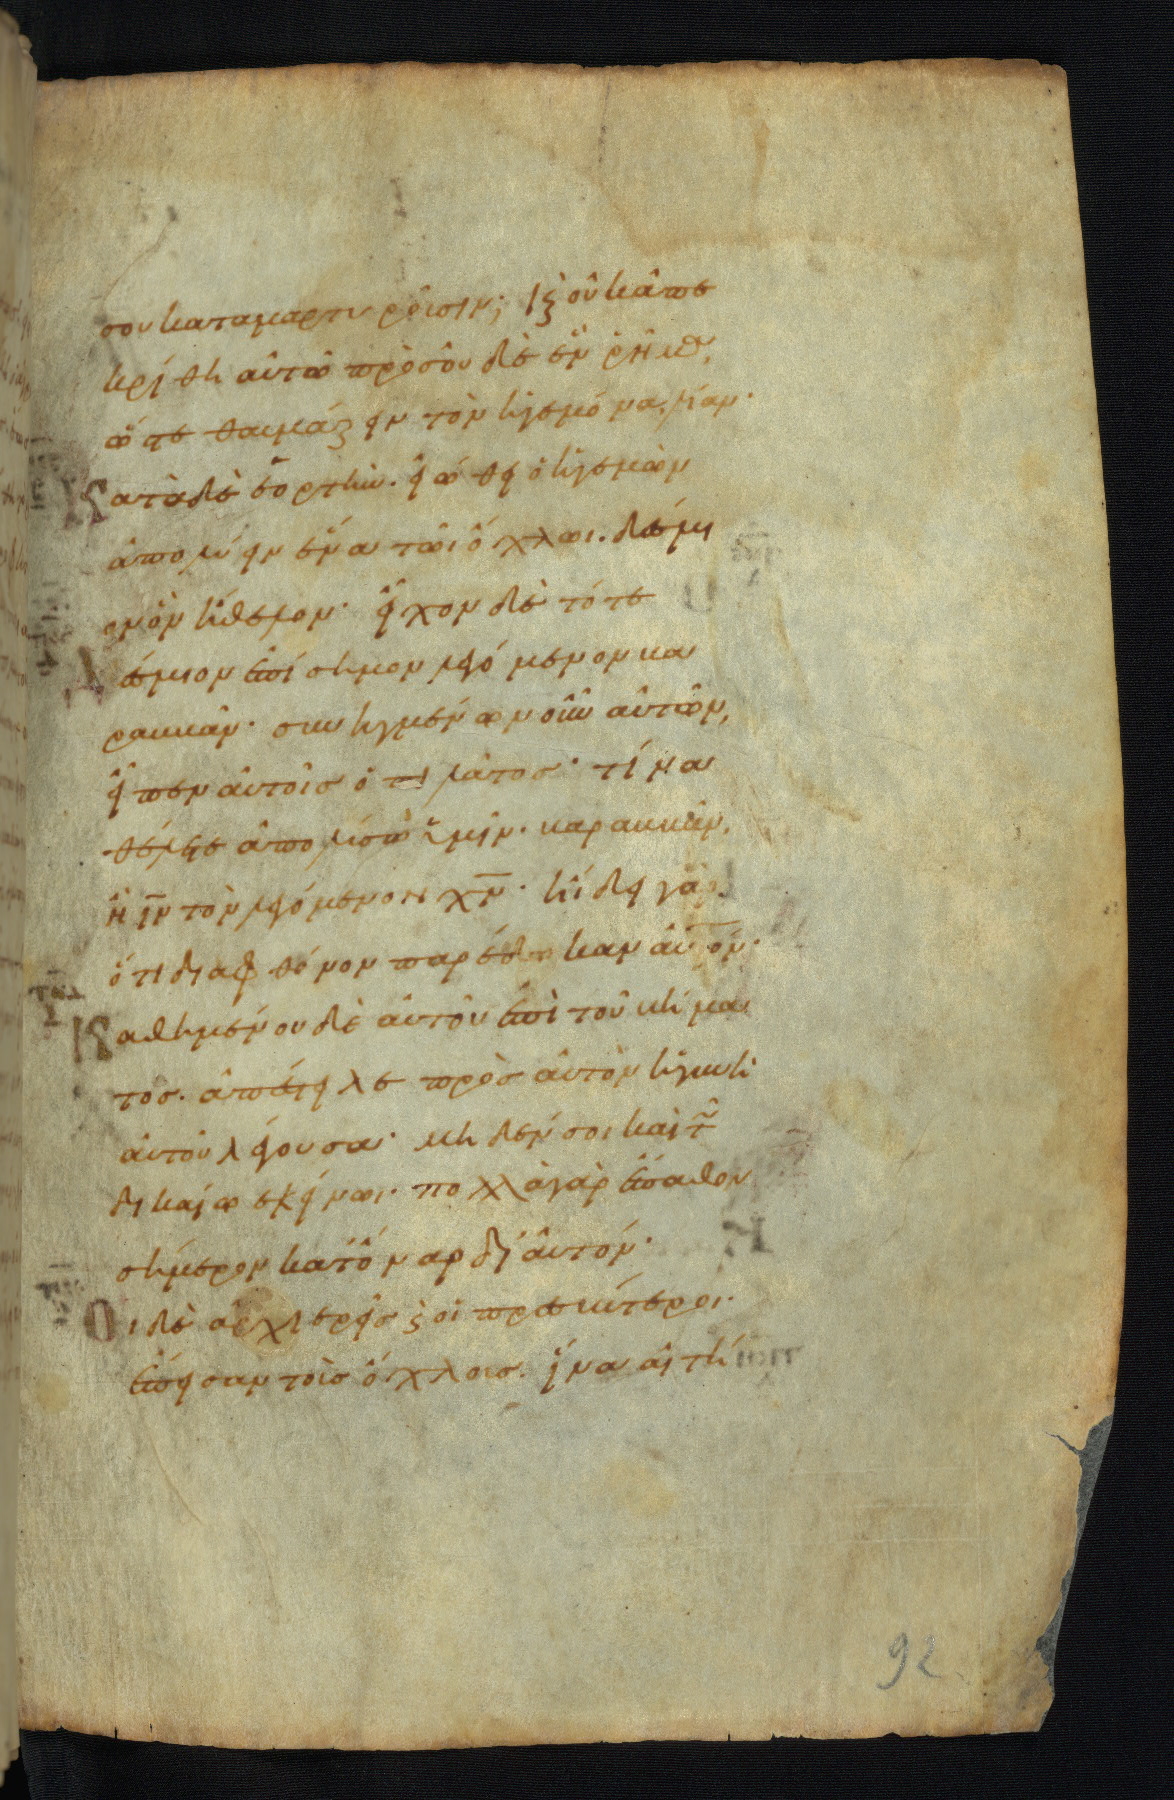 σου καταμαρτυροῦσιν; Κ(αὶ) οὐκ ἀπε
κρίθη αὐτῶ πρὸς οὐδὲ ἓν ῥῆμα,
ὥστε θαυμάζειν τὸν ἡγεμόνα λίαν·
Κατὰ δὲ ἑορτὴν. εἰώθει ὁ ἡγεμὼν
ἀπολύειν ἕνα τῶι ὄχλωι. δέσμι
ον ὃν ἤθελον· εἶχον δὲ τότε
δέσμιον ἐπίσημον λεγόμενον βα
ραββᾶν· συνηγμένων οὖν αὐτῶν,
εἶπεν αὐτοῖς ὁ πιλάτος· τίνα
θέλετε ἀπολύσω ὑμῖν· βαραββᾶν,
ἢ ιν τὸν λεγόμενον χν· ἤδει γὰρ
ὅτι διὰ φθόνον παρέδωκαν αὐτόν·
Καθημένου δὲ αὐτοῦ ἐπὶ τοῦ βήμα
τος. ἀπέστειλε πρὸς αὐτὸν ἡ γυνὴ
αὐτοῦ λέγουσα· μηδέν σοι καὶ τῶ
δικαίω ἐκείνωι. πολλὰ γὰρ ἔπαθον
σήμερον κατ' ὄναρ δι' αὐτόν·
Οἱ δὲ ἀρχιερεῖς κ(αὶ) οἱ πρεσβύτεροι.
ἔπεισαν τοὺς ὄχλους. ἵνα αἰτή
92